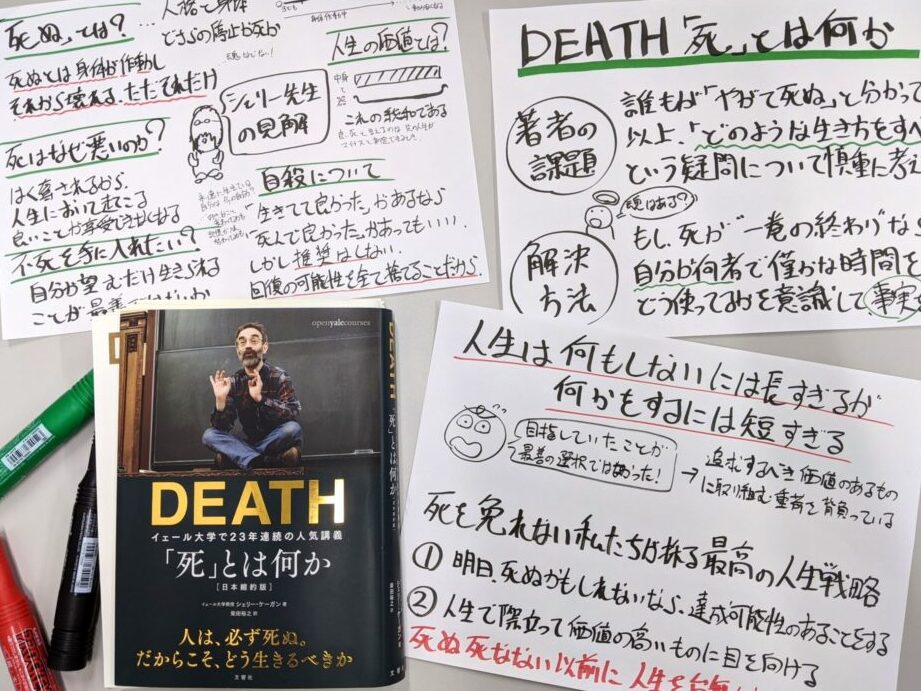 死ぬ、とは?
人格と身体
どちらの停止が死か
死ぬとは身体が作動し
それから壊れる、ただそれだけ
死はなぜ悪いのか?
はく奪されるから。
人生において起こる
良いことが享受できなくなる
不死を手に入れたい?
自分が望むだけ生きられる
ことが最善ではないか
シェリー先生
の見解
人生の価値とは?
中身
これの総和である
自殺について
「生きてて良かった」があるなら
「死んで良かった」があってもいい
しかし推奨はしない。
回復の可能性を全て捨てることだから。
DEATH「死」とは何か
著者の
課題
誰もが「やがて死ぬ」と分かって
以上、「どのような生き方をすべ
という疑問について慎重に考え
魂はある?
解決
方法
もし、死が一巻の終わりなら
自分が何者で僅かな時間を
どう使ってるかを意識して事実
人生は何もしないには長すぎるが
何かをするには短すぎる
目指していたことが
最善の選択ではなかった!
→ 追求するべき価値のあるもの
に取り組む重荷を背負っている
死を免れない私たちが採る最高の人生戦略
① 明日、死ぬかもしれないなら、達成可能性のあることをする
② 人生で際立って価値の高いものに目を向ける
死ぬ死なない以前に人生を
openyalecourses
DEATH
イェール大学で23年連続の人気講義
「死」とは何か
[日本縮約版]
イェール大学教授 シェリー・ケーガン 著
柴田裕之 訳
人は、必ず死ぬ。
だからこそ、どう生きるべきか
文響社
DEATH
「死」とは何か
シェリー・ケーガン
柴田裕之 訳
文響社